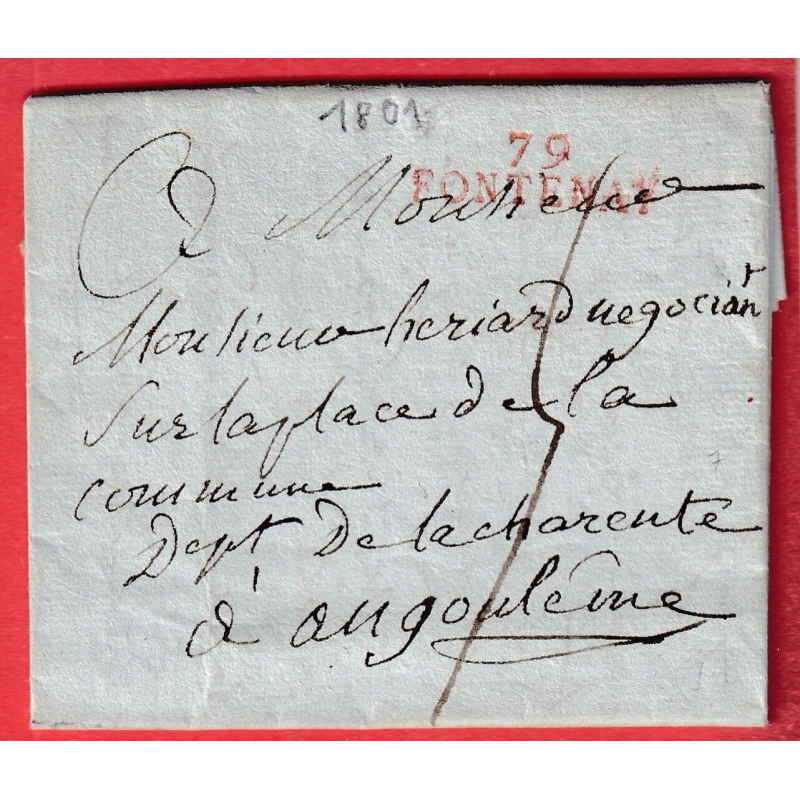 1801
79
FONTENAY
A Monsieur
Monsieur heriard negociant
Sur la place de la
commune
Dept De la charente
à angoulême
7